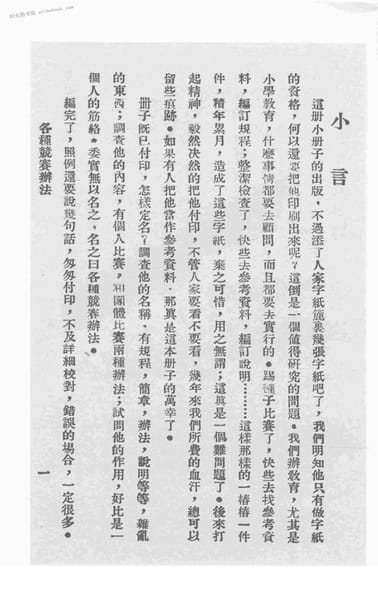 小言
這册小册子的出版，不過添了人家字紙簏裏幾張字紙吧了，我們明知他只有做字紙
的資格，何以還要把他印刷出來呢？這倒是一個値得研究的問題。我們辦敎育，尤其是
小學敎育，什麽事情都要去顧問，而且都要去實行的。踢毽子比賽了，快些去找參考資
料，編訂規程；整潔檢查了，快些去參考資料，編訂說明………這樣那樣的一樁樁一件
件，積年累月，造成了這些字紙，棄之可惜，用之無謂；這眞是一個難問題了。後來打
起精神，毅然决然的把他付印，不管人家要看不要看，幾年來我們所費的血汗，總可以
留些痕跡。如果有人把他當作參考資料，那眞是這本册子的萬幸了。
册子旣已付印，怎樣定名？調查他的名稱，有規程，簡章，辦法，說明等等，雜亂
的東西；調查他的內容，有個人比賽，和團體比賽兩種辦法；試問他的作用，好比是一
個人的筋絡。委實無以名之，名之曰各種競賽辦法。
編完了，照例還要說幾句話，匆匆付印，不及詳細校對，錯誤的場合，一定很多。
各種競賽辦法
一